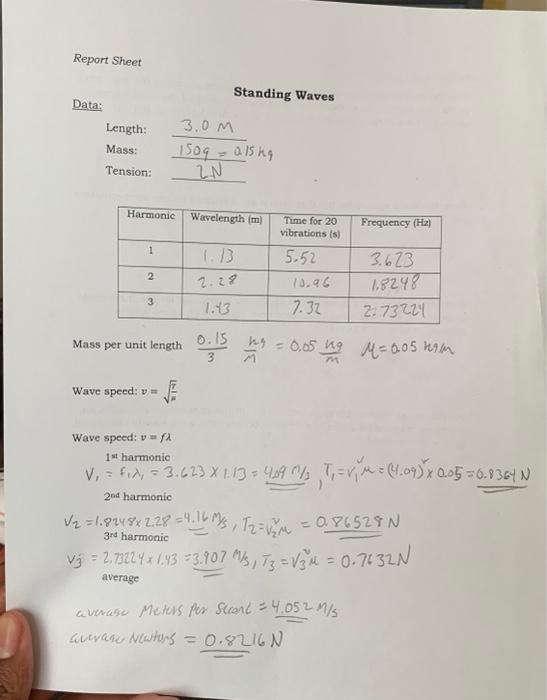 Report Sheet
Standing Waves
Data:
Length: 3.0 M
Mass: 150g = 0.15 kg
Tension: 2N
Harmonic Wavelength (m) Time for 20 vibrations (s) Frequency (Hz)
1 1.13 5.52 3.623
2 2.28 10.96 1.8248
3 1.43 7.32 2.73224
Mass per unit length 0.15/3 kg/M = 0.05 kg/m M = 0.05 kg/m
Wave speed: v = √T/μ
Wave speed: v = fλ
1st harmonic
V₁ = f₁λ₁ = 3.623 X 1.13 = 4.09 m/s, T₁ = V₁²μ = (4.09)² x 0.05 = 0.8364 N
2nd harmonic
V₂ = 1.8248 x 2.28 = 4.16 M/s, T₂ = V₂²μ = 0.86528 N
3rd harmonic
V₃ = 2.73224 x 1.43 = 3.907 M/s, T₃ = V₃²μ = 0.7632 N
average
average Meters Per Second = 4.052 M/s
average Newtons = 0.8216 N